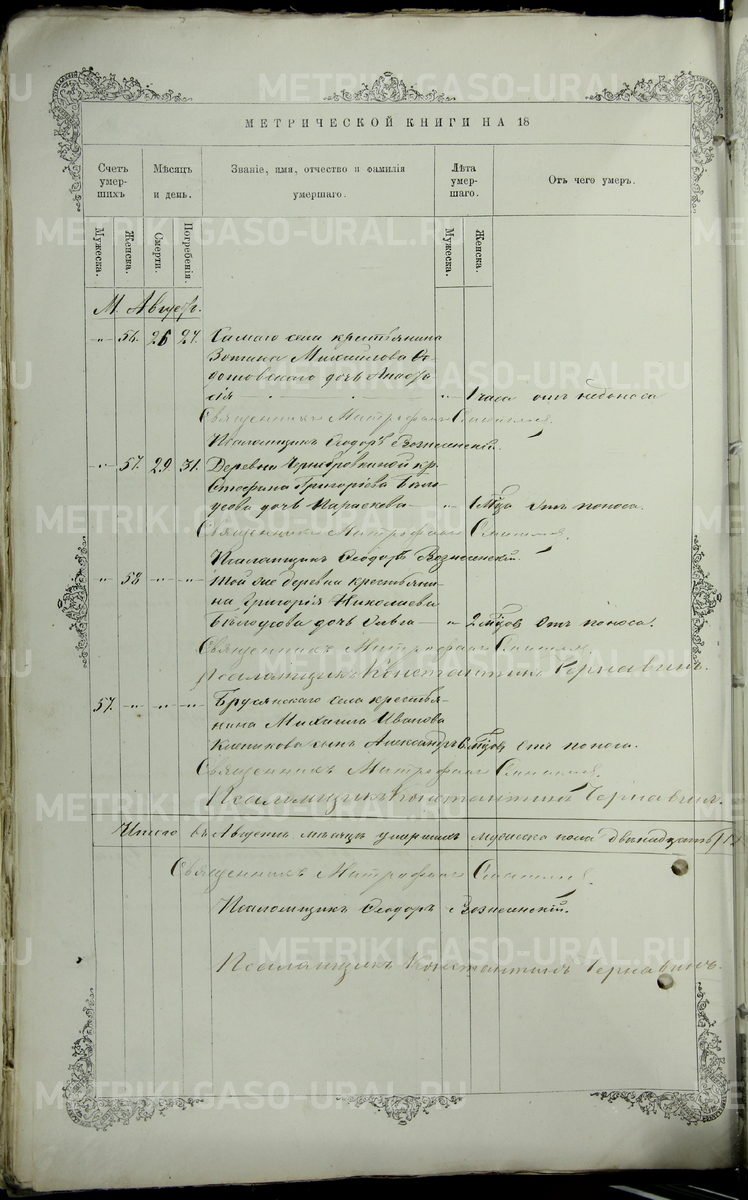 МЕТРИЧЕСКОЙ КНИГИ НА 18
Счетъ умер- шихъ
Мѣсяцъ и день.
Званіе, имя, отчество и фамилія умершаго.
Лѣта умер- шаго.
Отъ чего умеръ.
Мужеска.
Женска.
Смерти.
Погребенія.
Мужеска.
Женска.
М. Августъ.
" 56. 26 27. Самаго села крестьянина
Зотика Михайлова
дочь Анаста
сія " 1 часа отъ недоноса
Священникъ Митрофанъ
Псаломщикъ Ѳеодоръ Вознесенскій.
" 57. 29. 31. Деревни Чернобровкиной кр.
Стефана Григоріева Бѣло
усова дочь Параскева " 1 мѣца Отъ поноса.
Священникъ Митрофанъ
Псаломщикъ Ѳеодоръ Вознесенскій.
" 58 " " Той же деревни крестьяни-
на Григорія Николаева
Бѣлоусова дочь Ольга " 2 мѣцов Отъ поноса.
Священникъ Митрофанъ
Псаломщикъ Константинъ Чернавинъ.
57. " " " Брусянскаго села крестья-
нина Михаила Иванова
сынъ Александръ 6 мѣцов Отъ поноса.
Священникъ Митрофанъ
Псаломщикъ Константинъ Чернавинъ.
Итого въ Августѣ мѣсяцѣ умершихъ мужеска пола двѣнадцать (12
Священникъ Митрофанъ
Псаломщикъ Ѳеодоръ Вознесенскій.
Псаломщикъ Константинъ Чернавинъ.
METRIKI.GASO-URAL.RU